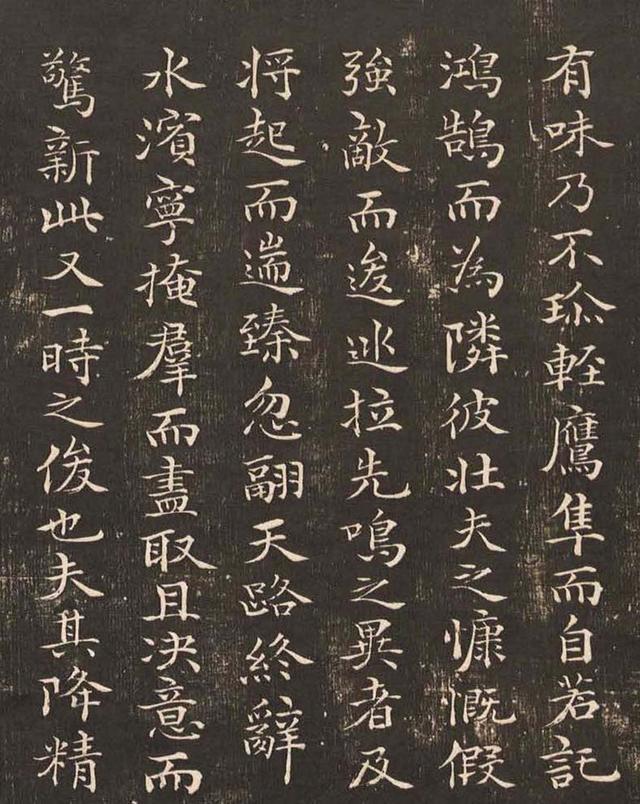 有味乃不珎輕鷹隼而自若託
鴻鵠而為隣彼壯夫之慷慨假
強敵而逡巡拉先鳴之異者及
将起而遄臻忽翮天路終辭
水濱寧掩羣而盡取且决意而
驚新此又一時之俊也夫其降精